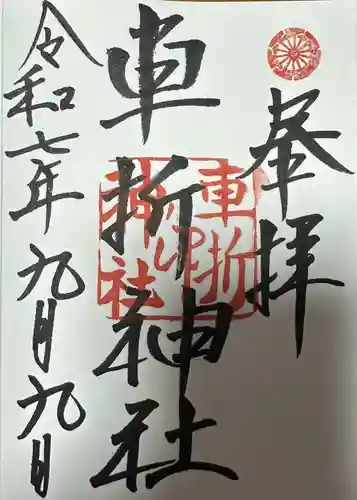 参拝
車折神社
車折
神社
令和七年九月九日